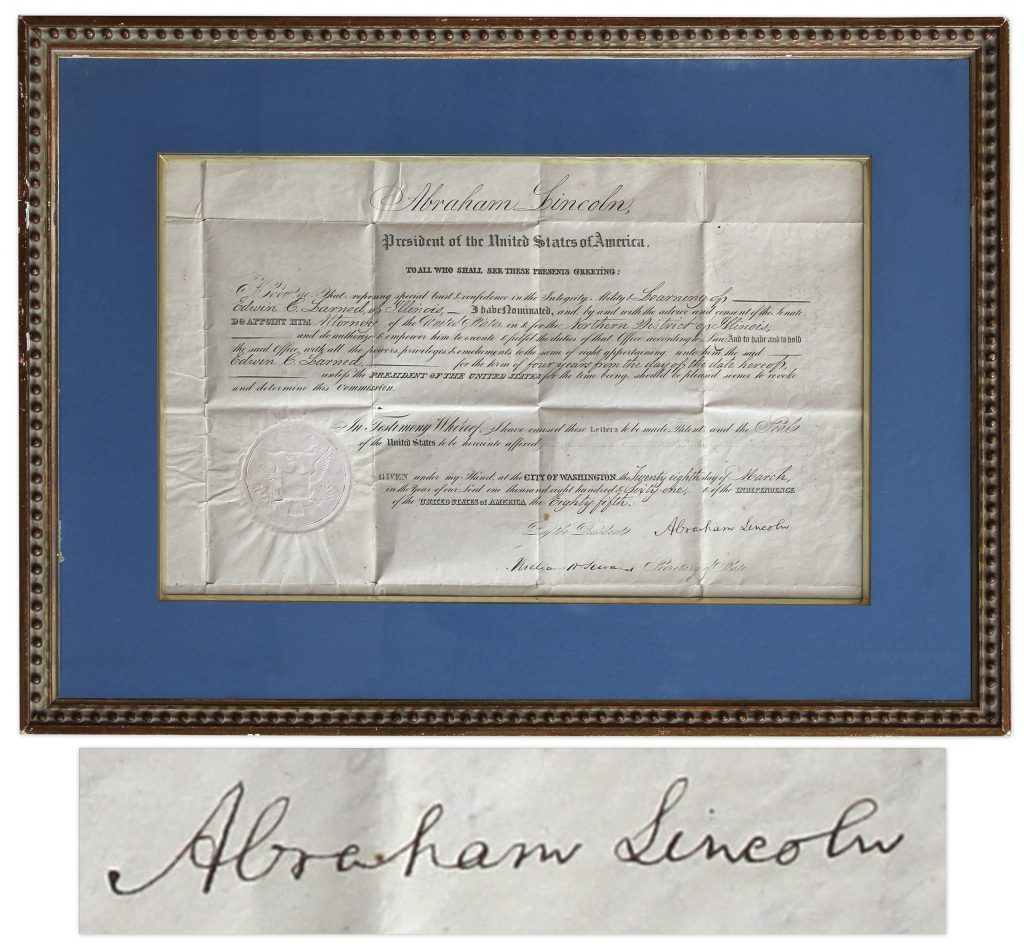 Abraham Lincoln,
President of the United States of America.
TO ALL WHO SHALL SEE THESE PRESENTS GREETING:
Know ye, That reposing special trust & confidence in the Integrity, Ability & Learning of
Edwin C. Larned, of Illinois, I have Nominated, and by and with the advice and consent of the Senate
DO APPOINT HIM Attorney of the United States in & for the Northern District of Illinois;
and do authorize & empower him to execute & fulfil the duties of that Office according to Law, And to have and to hold
the said Office, with all the powers, privileges, & emoluments to the same of right appertaining unto him the said
Edwin C. Larned, for the term of four years from the day of the date hereof,
unless the PRESIDENT OF THE UNITED STATES for the time being should be pleased sooner to revoke
and determine this Commission.
In Testimony Whereof, I have caused these Letters to be made Patent and the Seal
of the United States to be hereunto affixed.
GIVEN under my Hand, at the CITY OF WASHINGTON, the Twenty eighth day of March,
in the Year of our Lord one thousand eight hundred & sixty one; & of the INDEPENDENCE
of the UNITED STATES of AMERICA the Eighty fifth.
By the President: Abraham Lincoln
William H Seward Secretary of State.
Abraham Lincoln